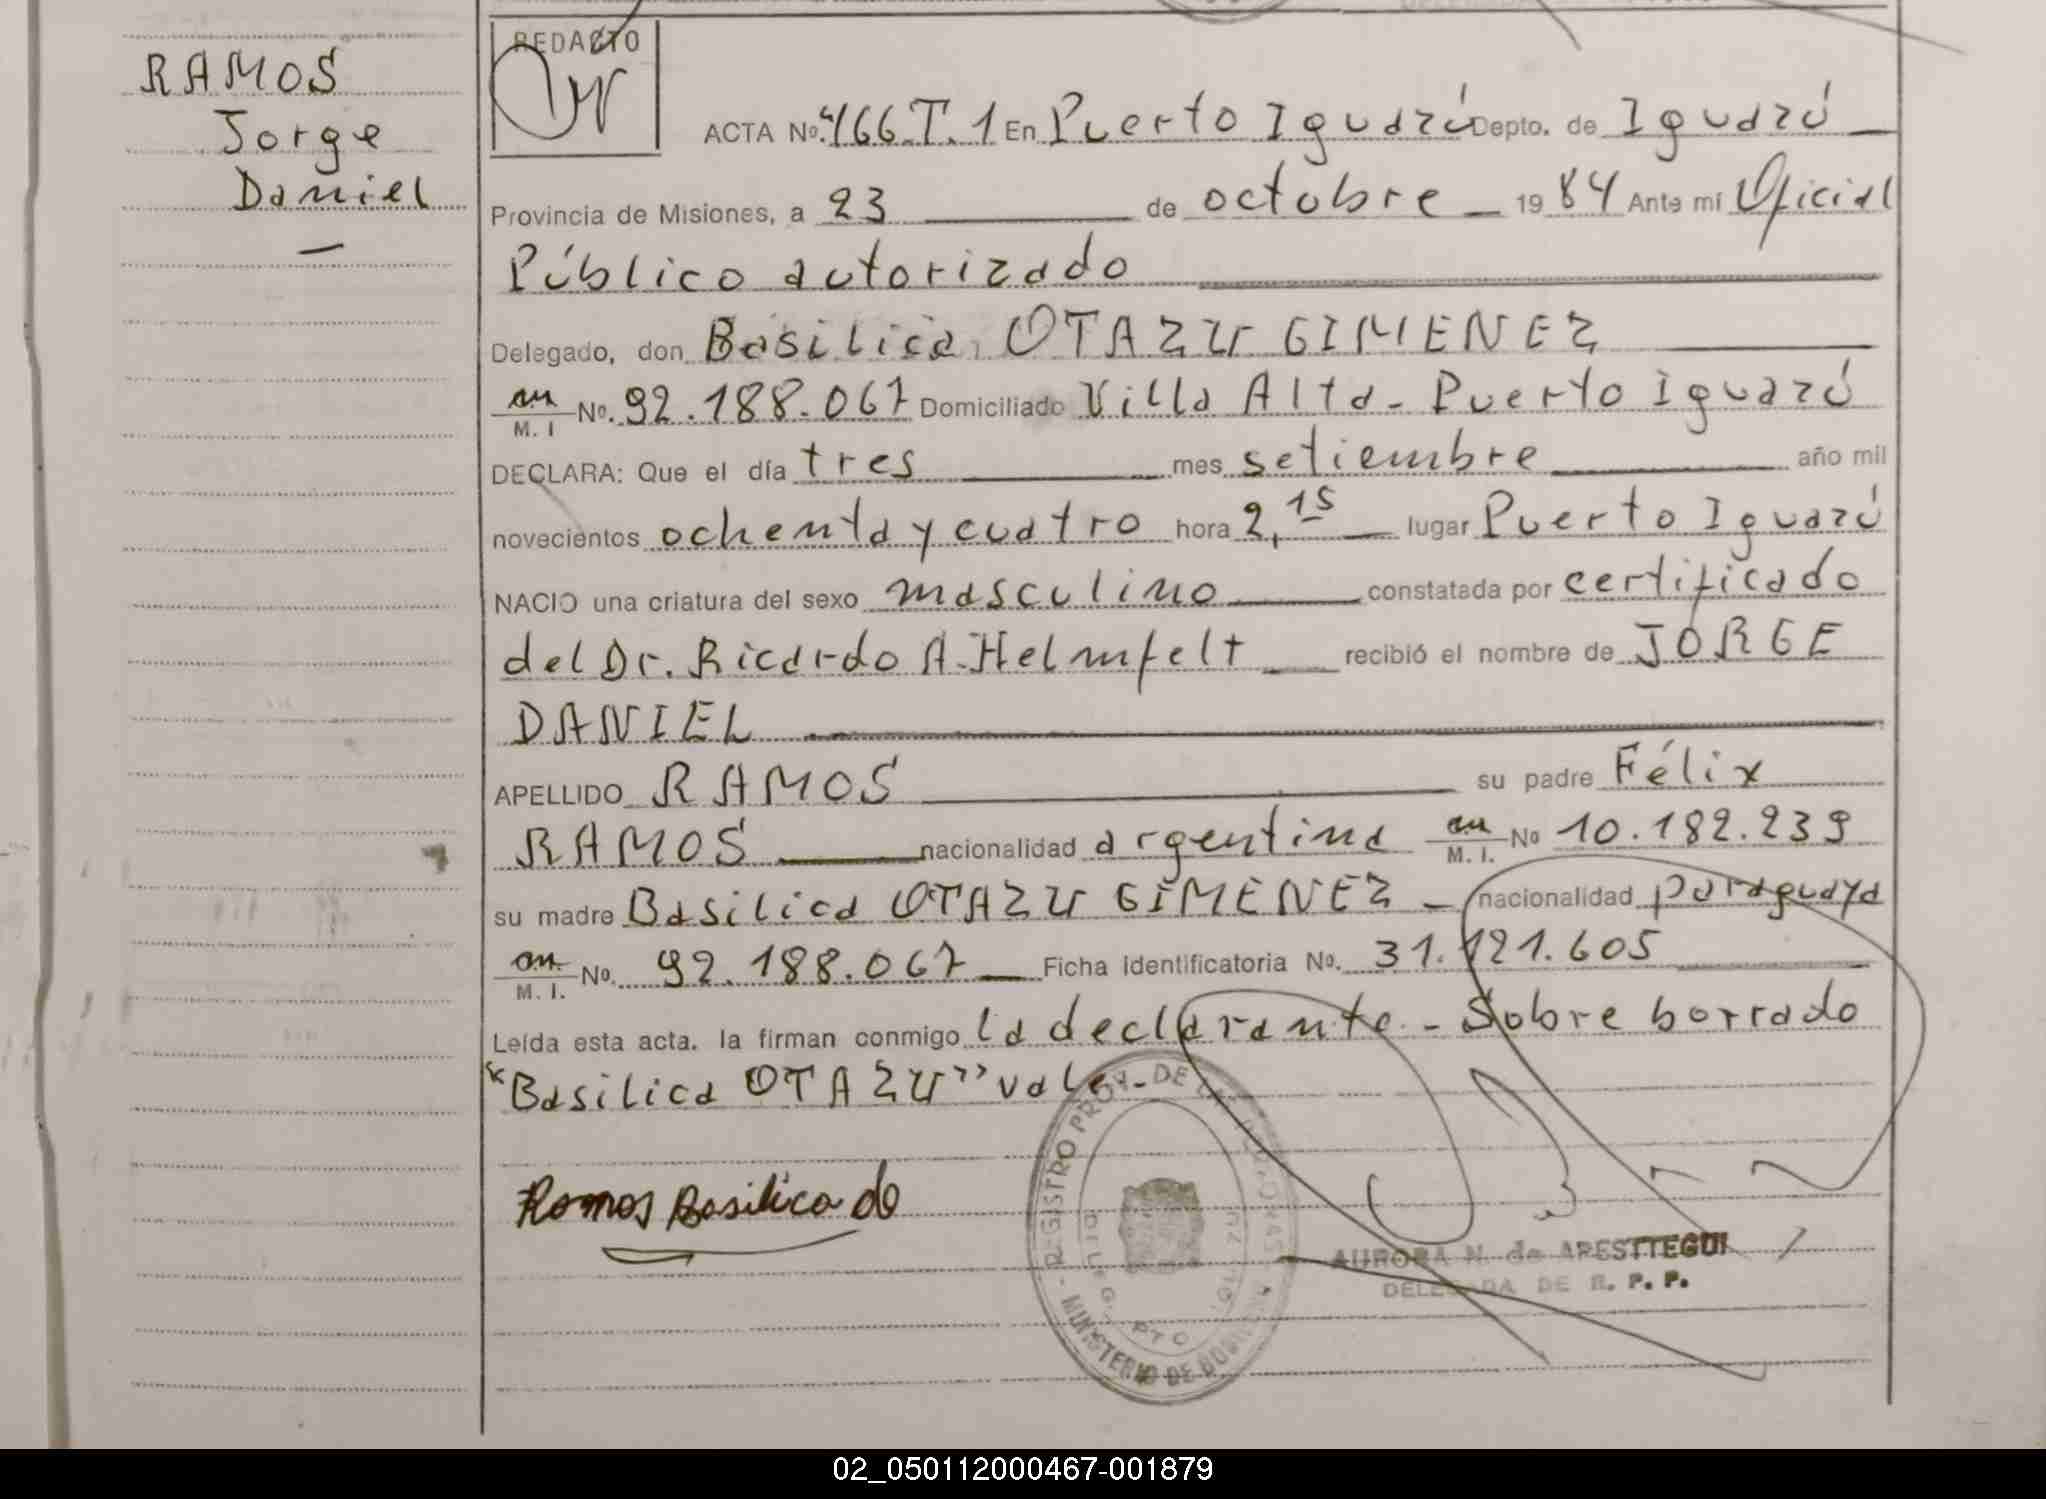 RAMOS
Jorge
Daniel
REDACTO
ACTA Nº 466.T.1 En Puerto Iguazú Depto. de Iguazú
Provincia de Misiones, a 23 de octubre 1984 Ante mí Oficial
Público autorizado
Delegado, don Basilica OTAZU GIMENEZ
M. I Nº. 92.188.067 Domiciliado Villa Alta - Puerto Iguazú
DECLARA: Que el día tres mes setiembre año mil
novecientos ochenta y cuatro hora 2,15 lugar Puerto Iguazú
NACIO una criatura del sexo masculino constatada por certificado
del Dr. Ricardo A. Helmfelt recibió el nombre de JORGE
DANIEL
APELLIDO RAMOS su padre Félix
RAMOS nacionalidad argentina M. I. Nº 10.182.239
su madre Basilica OTAZU GIMENEZ - nacionalidad paraguaya
M. I. Nº. 92.188.067 Ficha Identificatoria Nº. 31.121.605
Leída esta acta. la firman conmigo la declarante. - Sobre borrado
"Basilica OTAZU" vale.-
Ramos Basilica de
REGISTRO PROV. DE LAS PERSONAS - MINISTERIO DE GOBIERNO
AURORA N. de ARESTTEGUI
DELEGADA DE R. P. P.
02_050112000467-001879